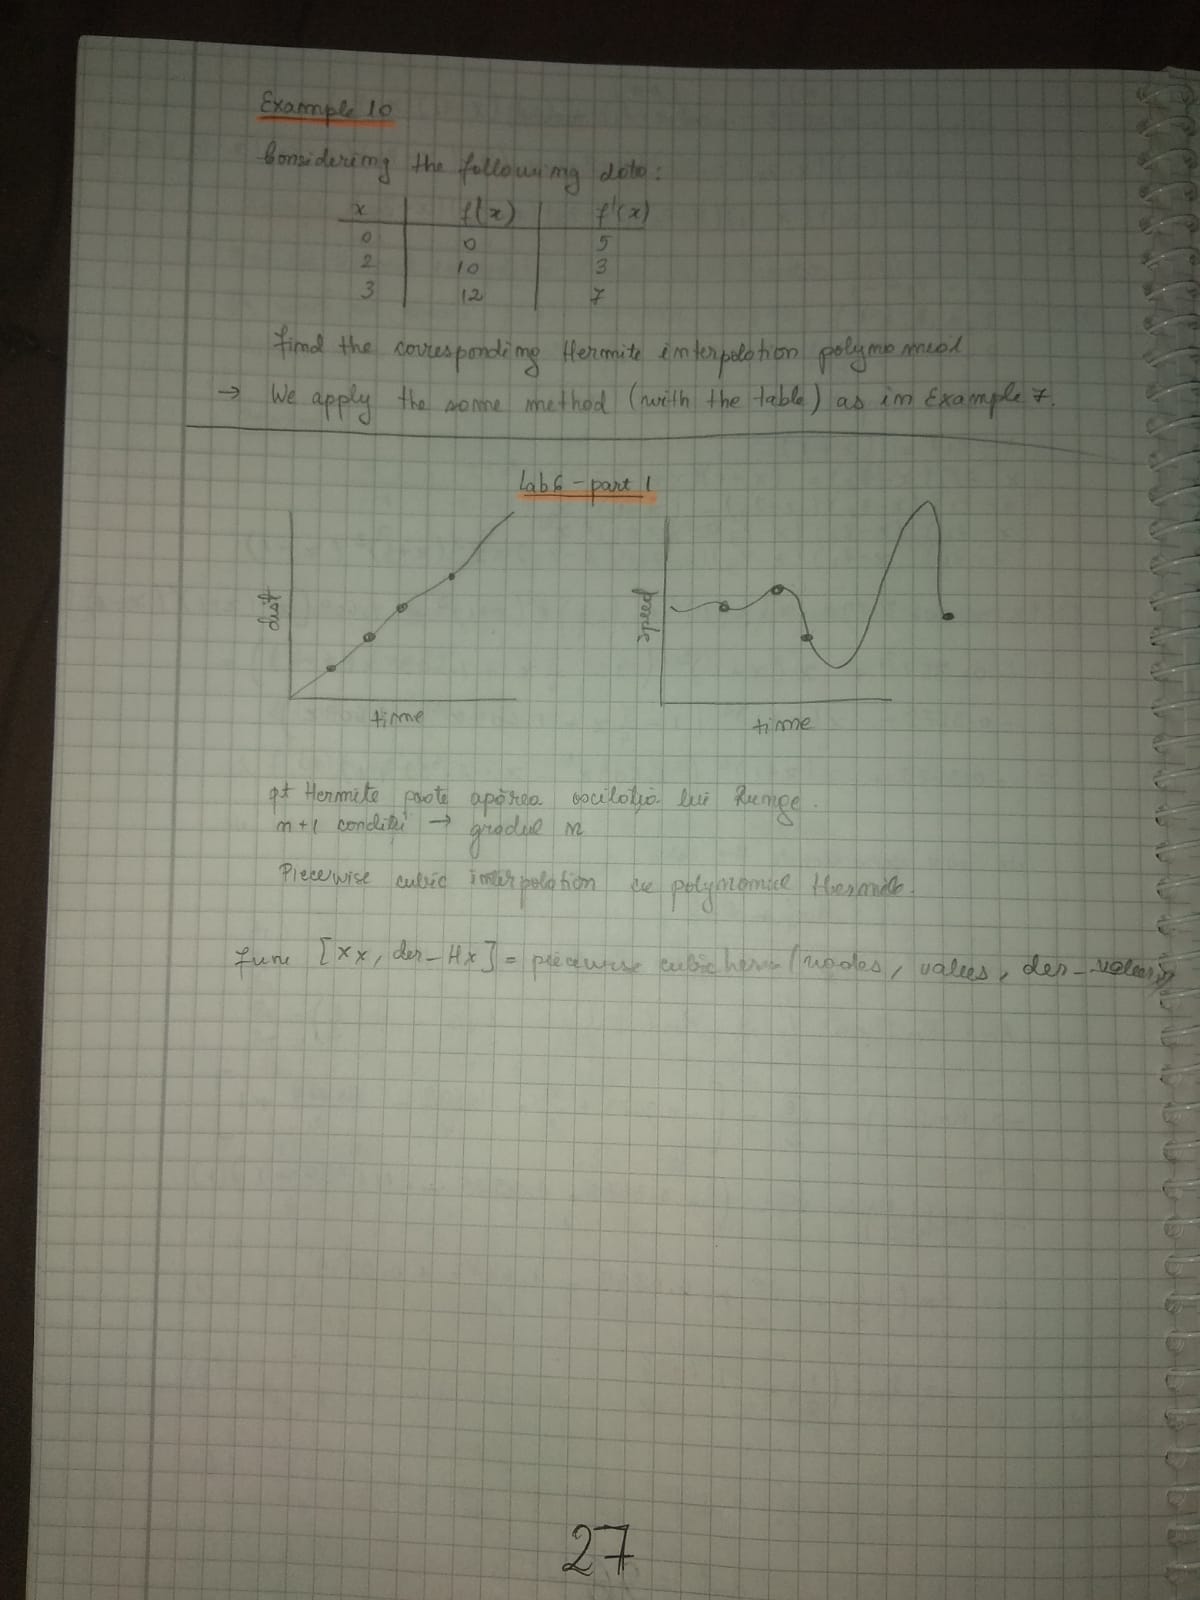 Example 10
Considering the following data:
x f(x) f'(x)
0 0 5
2 10 3
3 12 7
Find the corresponding Hermite interpolation polynomial
→ We apply the same method (with the table) as in Example 7.
Lab 6 - part 1
dist
time
speed
time
pt Hermite poate apărea oscilația lui Runge.
n+1 condiții → gradul n
Piecewise cubic interpolation cu polynomiul Hermite.
func [xx, der_Hx] = piecewise cubic herm (nodes, values, der_values)
27